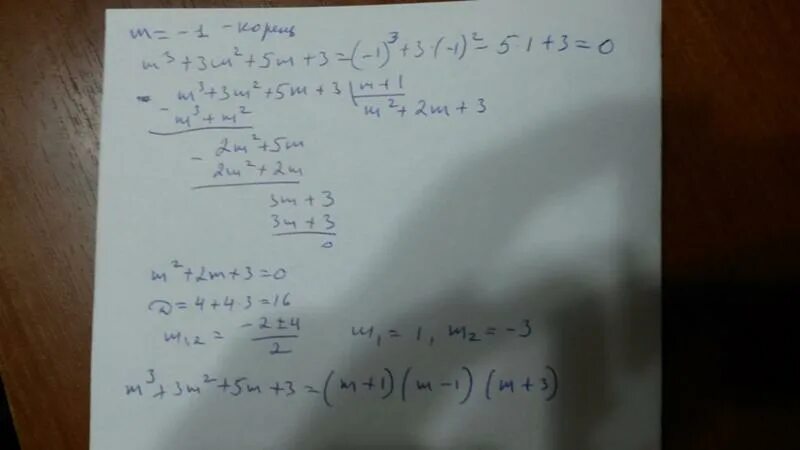 m = -1 - корень
m³ + 3m² + 5m + 3 = (-1)³ + 3·(-1)² - 5·1 + 3 = 0
- m³ + 3m² + 5m + 3 | m + 1
m³ + m² m² + 2m + 3
- 2m² + 5m
2m² + 2m
3m + 3
3m + 3
0
m² + 2m + 3 = 0
D = 4 + 4·3 = 16
m₁,₂ = (-2 ± 4)/2 m₁ = 1, m₂ = -3
m³ + 3m² + 5m + 3 = (m + 1)(m - 1)(m + 3)